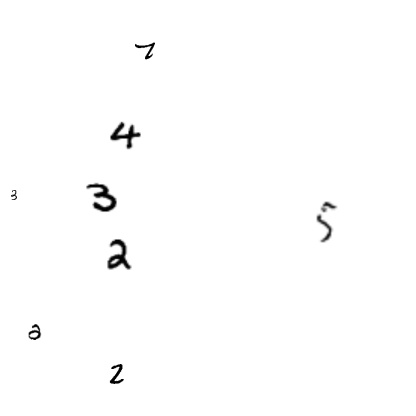 7
4
3
3
5
2
2
2